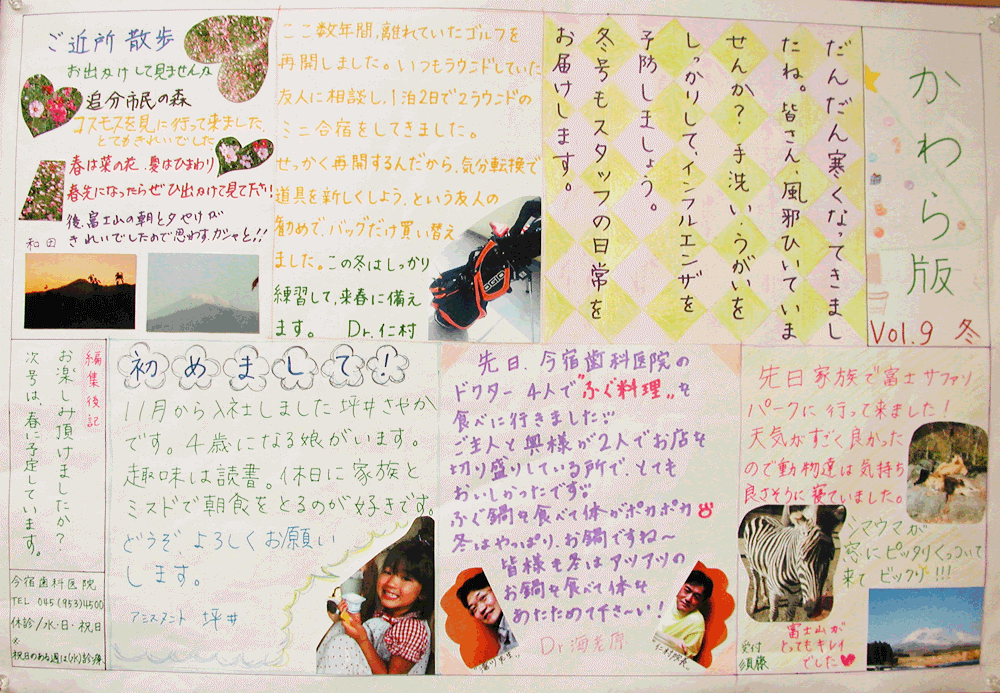 かわら版
Vol.9 冬
だんだん寒くなってきまし
たね。皆さん、風邪ひいていま
せんか？手洗い、うがいを
しっかりして、インフルエンザを
予防しましょう。
冬号もスタッフの日常を
お届けします。
ここ数年間、離れていたゴルフを
再開しました。いつもラウンドしていた
友人に相談し、1泊2日で2ラウンドの
ミニ合宿をしてきました。
せっかく再開するんだから、気分転換で
道具を新しくしよう、という友人の
勧めで、バッグだけ買い替え
ました。この冬はしっかり
練習して、来春に備え
ます。 Dr.仁村
ご近所散歩
お出かけして見ませんか
追分市民の森
コスモスを見に行って来ました、
とてもきれいでした
春は菜の花、夏はひまわり
春先になったらぜひ出かけて見て下さい!
後、富士山の朝と夕やけが
きれいでしたので思わず、ガシャと!!
和田
先日家族で富士サファリ
パークに行って来ました！
天気がすごく良かった
ので動物達は気持ち
良さそうに寝ていました。
シマウマが
窓にピッタリくっついて
来てビックリ!!!
富士山が
とってもキレイ
でした♥
受付
須藤
先日、今宿歯科医院の
ドクター4人で"ふぐ料理"を
食べに行きました!!
ご主人と奥様が2人でお店を
切り盛りしている所で、とても
おいしかったです!!
ふぐ鍋を食べて体がポカポカ
冬はやっぱり、お鍋ですね〜
皆様も冬はアツアツの
お鍋を食べて体を
あたためて下さ〜い！
Dr.海老原
仁村院長
初めまして！
11月から入社しました坪井さやか
です。4歳になる娘がいます。
趣味は読書。休日に家族と
ミスドで朝食をとるのが好きです。
どうぞ、よろしくお願い
します。
アシスタント 坪井
編集後記
お楽しみ頂けましたか？
次号は、春に予定しています。
今宿歯科医院
TEL 045(953)4500
休診/水・日・祝日
※
祝日のある週は(水)診療